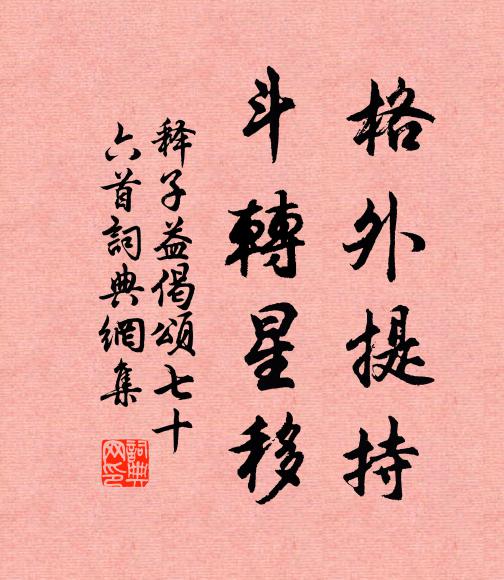 格外提持
斗轉星移
释子益偈頌七十
六首詞典網集
詞典网印